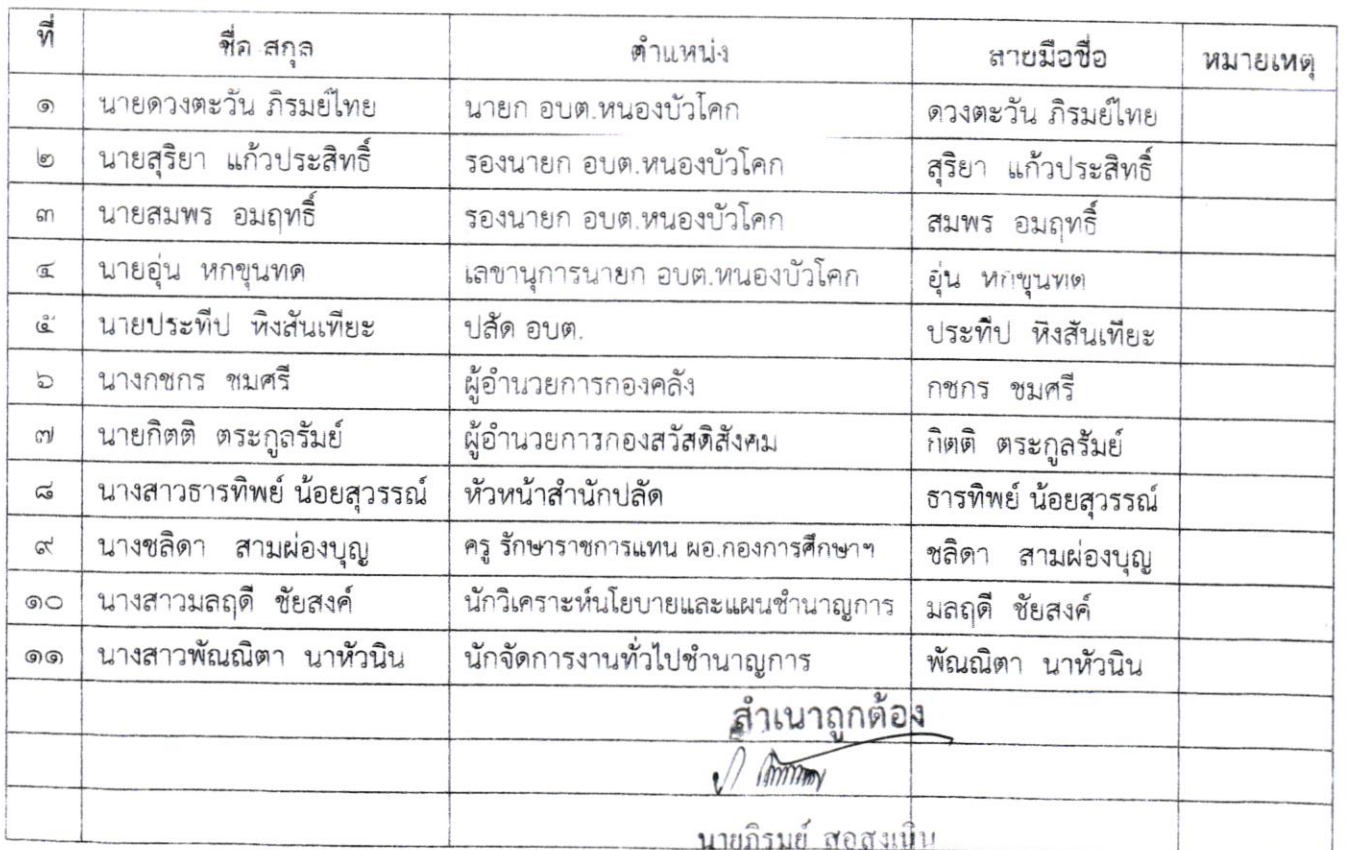 ที่ ชื่อ สกุล ตำแหน่ง ลายมือชื่อ หมายเหตุ
๑ นายดวงตะวัน ภิรมย์ไทย นายก อบต.หนองบัวโคก ดวงตะวัน ภิรมย์ไทย
๒ นายสุริยา แก้วประสิทธิ์ รองนายก อบต.หนองบัวโคก สุริยา แก้วประสิทธิ์
๓ นายสมพร อมฤทธิ์ รองนายก อบต.หนองบัวโคก สมพร อมฤทธิ์
๔ นายอุ่น หกขุนทด เลขานุการนายก อบต.หนองบัวโคก อุ่น หกขุนทด
๕ นายประทีป หิงสันเทียะ ปลัด อบต. ประทีป หิงสันเทียะ
๖ นางกชกร ชมศรี ผู้อำนวยการกองคลัง กชกร ชมศรี
๗ นายกิตติ ตระกูลรัมย์ ผู้อำนวยการกองสวัสดิสังคม กิตติ ตระกูลรัมย์
๘ นางสาวธารทิพย์ น้อยสุวรรณ์ หัวหน้าสำนักปลัด ธารทิพย์ น้อยสุวรรณ์
๙ นางชลิดา สามผ่องบุญ ครู รักษาราชการแทน ผอ.กองการศึกษาฯ ชลิดา สามผ่องบุญ
๑๐ นางสาวมลฤดี ชัยสงค์ นักวิเคราะห์นโยบายและแผนชำนาญการ มลฤดี ชัยสงค์
๑๑ นางสาวพัณณิตา นาหัวนิน นักจัดการงานทั่วไปชำนาญการ พัณณิตา นาหัวนิน
สำเนาถูกต้อง
นายภิรมย์ สอสูงเนิน